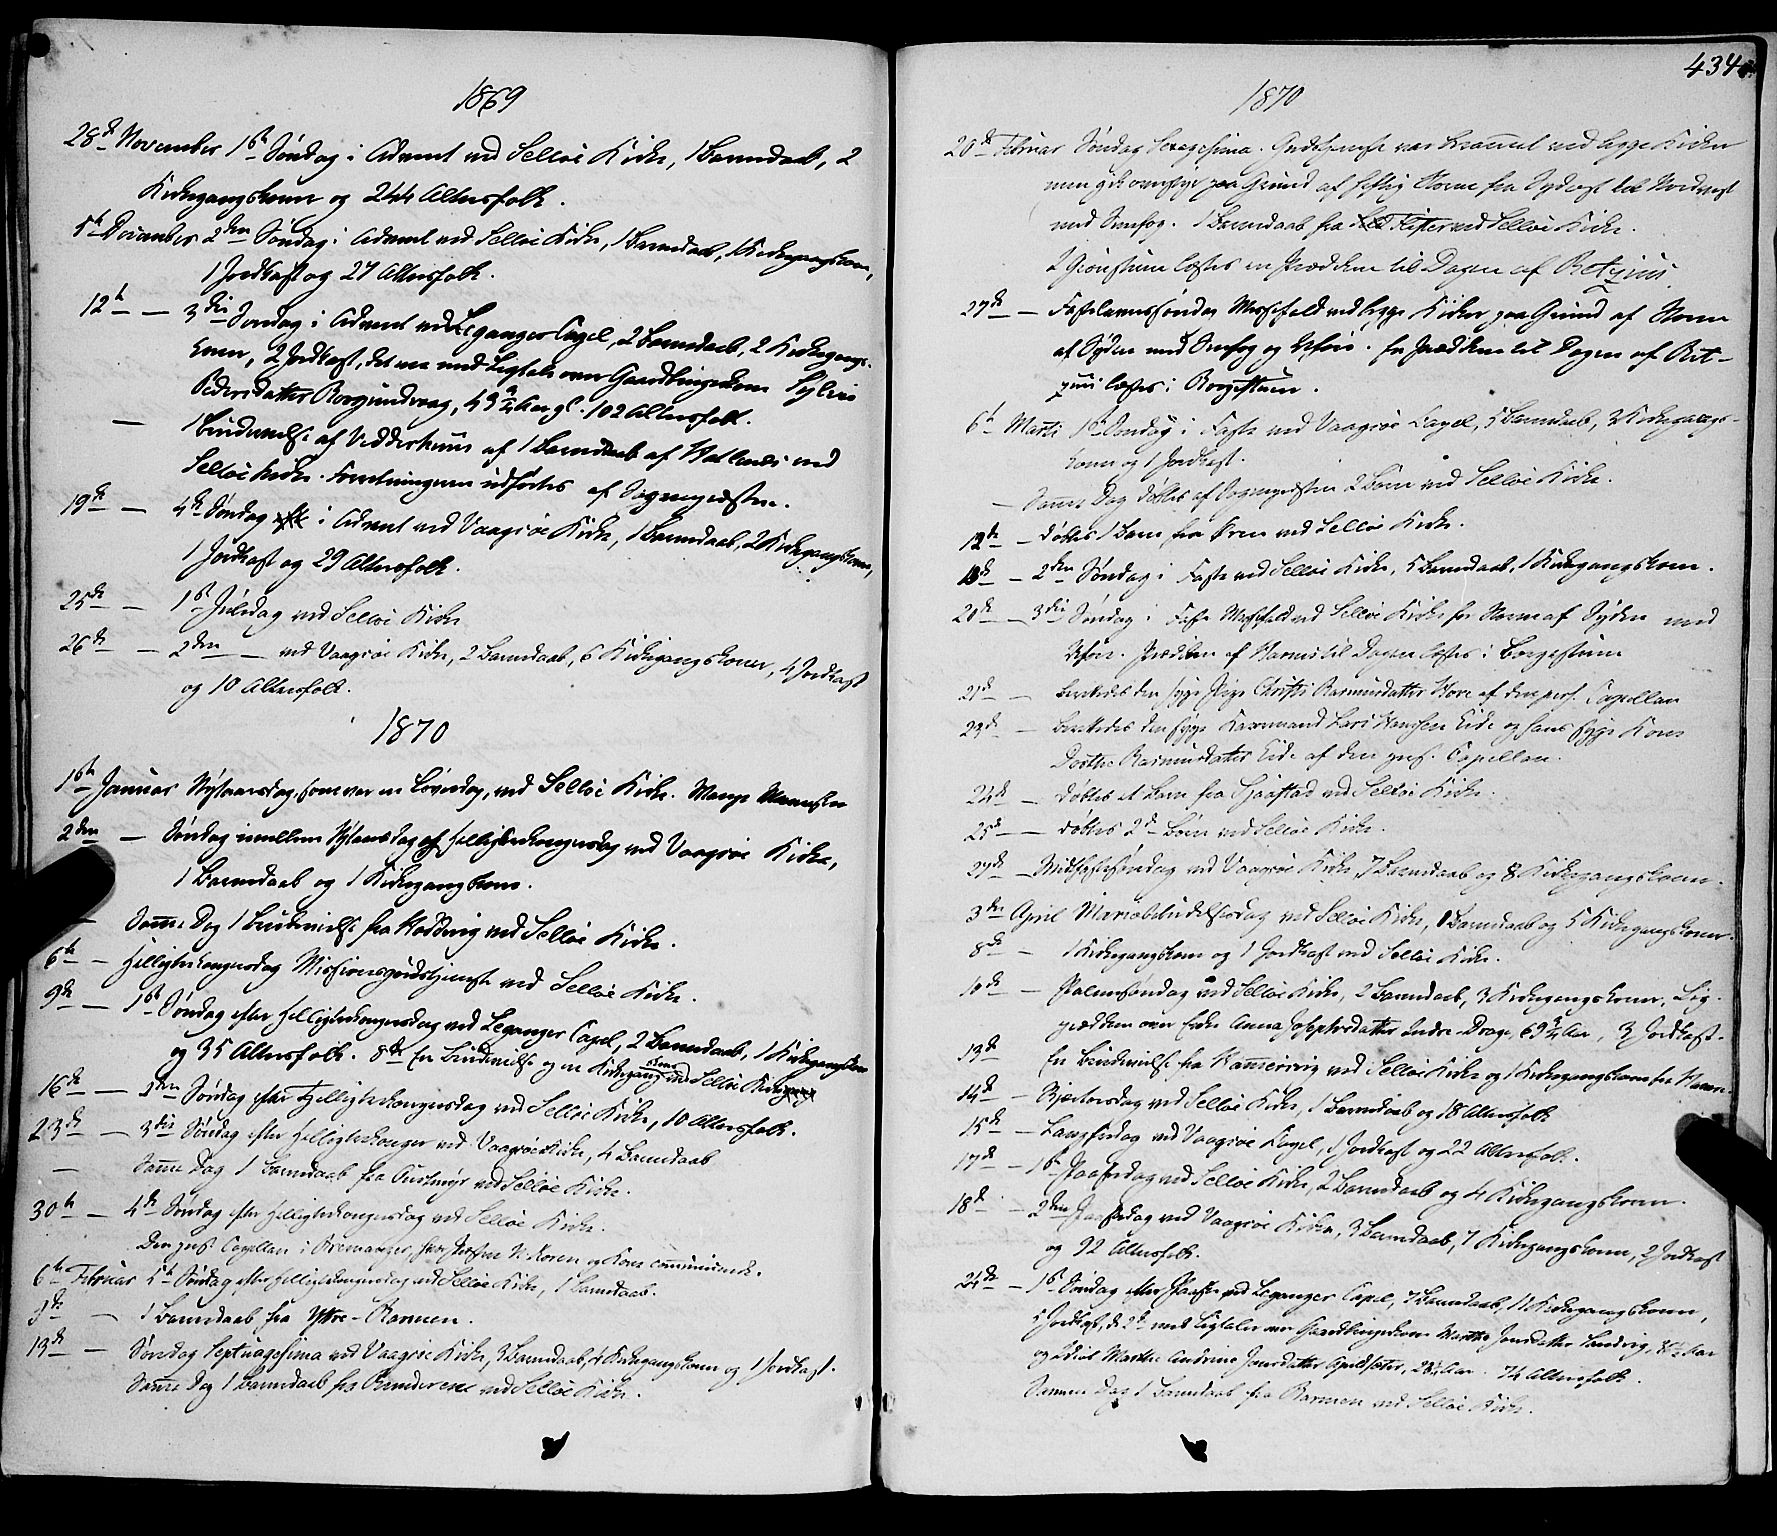 1869
28de November 1ste Søndag i Advent ved Selløe Kirke, 1 Barnedaab, 2
Kirkegangskoner og 244 Altersfolk.
5te December 2den Søndag i Advent ved Selløe Kirke, 1 Barnedaab, 1 Kirkegangskone,
1 Jordkast og 27 Altersfolk.
12te — 3die Søndag i Advent ved Leganger Capel, 2 Barnedaab, 2 Kirkegangs-
koner, 2 Jordkast, det ene med Ligtale over Gaardbrugerkone
Pedersdatter Borgundvaag, 102 Altersfolk.
— 1 Barnedaab af ved
Selløe Kirke. Forretningerne udførtes af Sognepresten.
19de — 4de Søndag i Advent ved Vaagsøe Kirke, 1 Barnedaab, 2 Kirkegangskoner,
1 Jordkast og 29 Altersfolk.
25de — 1ste Juledag ved Selløe Kirke
26de — 2den — ved Vaagsøe Kirke, 2 Barnedaab, 6 Kirkegangskoner, 4 Jordkast
og 10 Altersfolk.
1870
1ste Januar Nytaarsdag, som var en Løverdag, ved Selløe Kirke. Mange Mennesker
2den — Søndag imellem Nytaarsdag og Helligtrekongersdag ved Vaagsøe Kirke,
1 Barnedaab og 1 Kirkegangskone.
— Samme Dag 1 fra ved Selløe Kirke.
6te — Helligtrekongersdag Missionsgudstjeneste ved Selløe Kirke.
9de — 1ste Søndag efter Helligtrekongersdag ved Leganger Capel, 2 Barnedaab, 1 Kirkegangskone
og 35 Altersfolk. 8de En og en Kirkegangskone ved Selløe Kirke
16de — 2den Søndag efter Helligtrekongersdag ved Selløe Kirke, 10 Altersfolk.
23de — 3die Søndag efter Helligtrekonger ved Vaagsøe Kirke, 4 Barnedaab
— Samme Dag 1 Barnedaab fra ved Selløe Kirke.
30te — 4de Søndag efter Helligtrekongersdag ved Selløe Kirke.
Den pers. Capellan i Bremanger, Koren og Kone communicerede.
6te Februar 5te Søndag efter Helligtrekongersdag ved Selløe Kirke, 1 Barnedaab.
9de — 1 Barnedaab fra Yttre-Barmen.
13de — Søndag Septuagesima ved Vaagsøe Kirke, 3 Barnedaab, 4 Kirkegangskoner og 1 Jordkast.
Samme Dag 1 Barnedaab fra ved Selløe Kirke.
434
1870
20de Februar Søndag Sexagesima. Gudstjeneste var berammet ved begge Kirker
men gik overstyr paa Grund af heftig Storm fra Sydost til Nordvest
med Snefog. 1 Barnedaab fra ved Selløe Kirke.
I læstes en Prædiken til Dagen af Retzius.
27de — Fastelavnssøndag Messefald ved begge Kirker paa Grund af Storm
af Syden med Snefog og Uføre. En Prædiken til Dagen af Ret-
zius læstes i Borgestuen.
6te Marti 1ste Søndag i Faste ved Vaagsøe Capel, 5 Barnedaab, 3 Kirkegangs-
koner og 1 Jordkast.
— Samme Dag døbtes af Sognepresten 2 Børn ved Selløe Kirke.
12te — døbtes 1 Barn fra ved Selløe Kirke.
13de — 2den Søndag i Faste ved Selløe Kirke, 5 Barnedaab, 1 Kirkegangskone.
20de — 3die Søndag i Faste Messefald ved Selløe Kirke for Storm af Syden med
Uføre. Prædiken af til Dagen læstes i Borgestuen
21de — berettedes den syge Pige Christi Rasmusdatter Hove af den pers. Capellan
23de — berettedes den syge Kaarmand Lars Hanssen Eide og hans syge Kone
Dorthe Rasmusdatter Eide af den pers. Capellan.
24de — døbtes et Barn fra ved Selløe Kirke.
25de — døbtes 2de Børn ved Selløe Kirke.
27de — Midfastesøndag ved Vaagsøe Kirke, 7 Barnedaab og 8 Kirkegangskoner.
3die April Mariæbebudelsesdag ved Selløe Kirke, 1 Barnedaab og 5 Kirkegangskoner.
8de — 1 Kirkegangskone og 1 Jordkast ved Selløe Kirke.
10de — Palmesøndag ved Selløe Kirke, 2 Barnedaab, 3 Kirkegangskoner, Lig-
prædiken over Enke Anna Josephsdatter Indre-Drage, 69 3/4 Aar, 3 Jordkast.
13de — En fra ved Selløe Kirke og 1 Kirkegangskone fra
14de — Skjærtorsdag ved Selløe Kirke, 1 Barnedaab og 18 Altersfolk
15de — Langfredag ved Vaagsøe Capel, 1 Jordkast og 22 Altersfolk.
17de — 1ste Paaskedag ved Selløe Kirke, 2 Barnedaab og 4 Kirkegangskoner.
18de — 2den Paaskedag ved Vaagsøe Kirke, 3 Barnedaab, 7 Kirkegangskoner, 2 Jordkast
og 92 Altersfolk.
24de — 1ste Søndag efter Paaske ved Leganger Capel, 7 Barnedaab, 11 Kirkegangskoner,
5 Jordkast, de 2de med Ligtaler over Gaardbrugerkone Marthe Jonsdatter Sandvig, Aar
og Marthe Andrine Jensdatter Aar. 74 Altersfolk.
Samme Dag 1 Barnedaab fra Barmen ved Selløe Kirke.